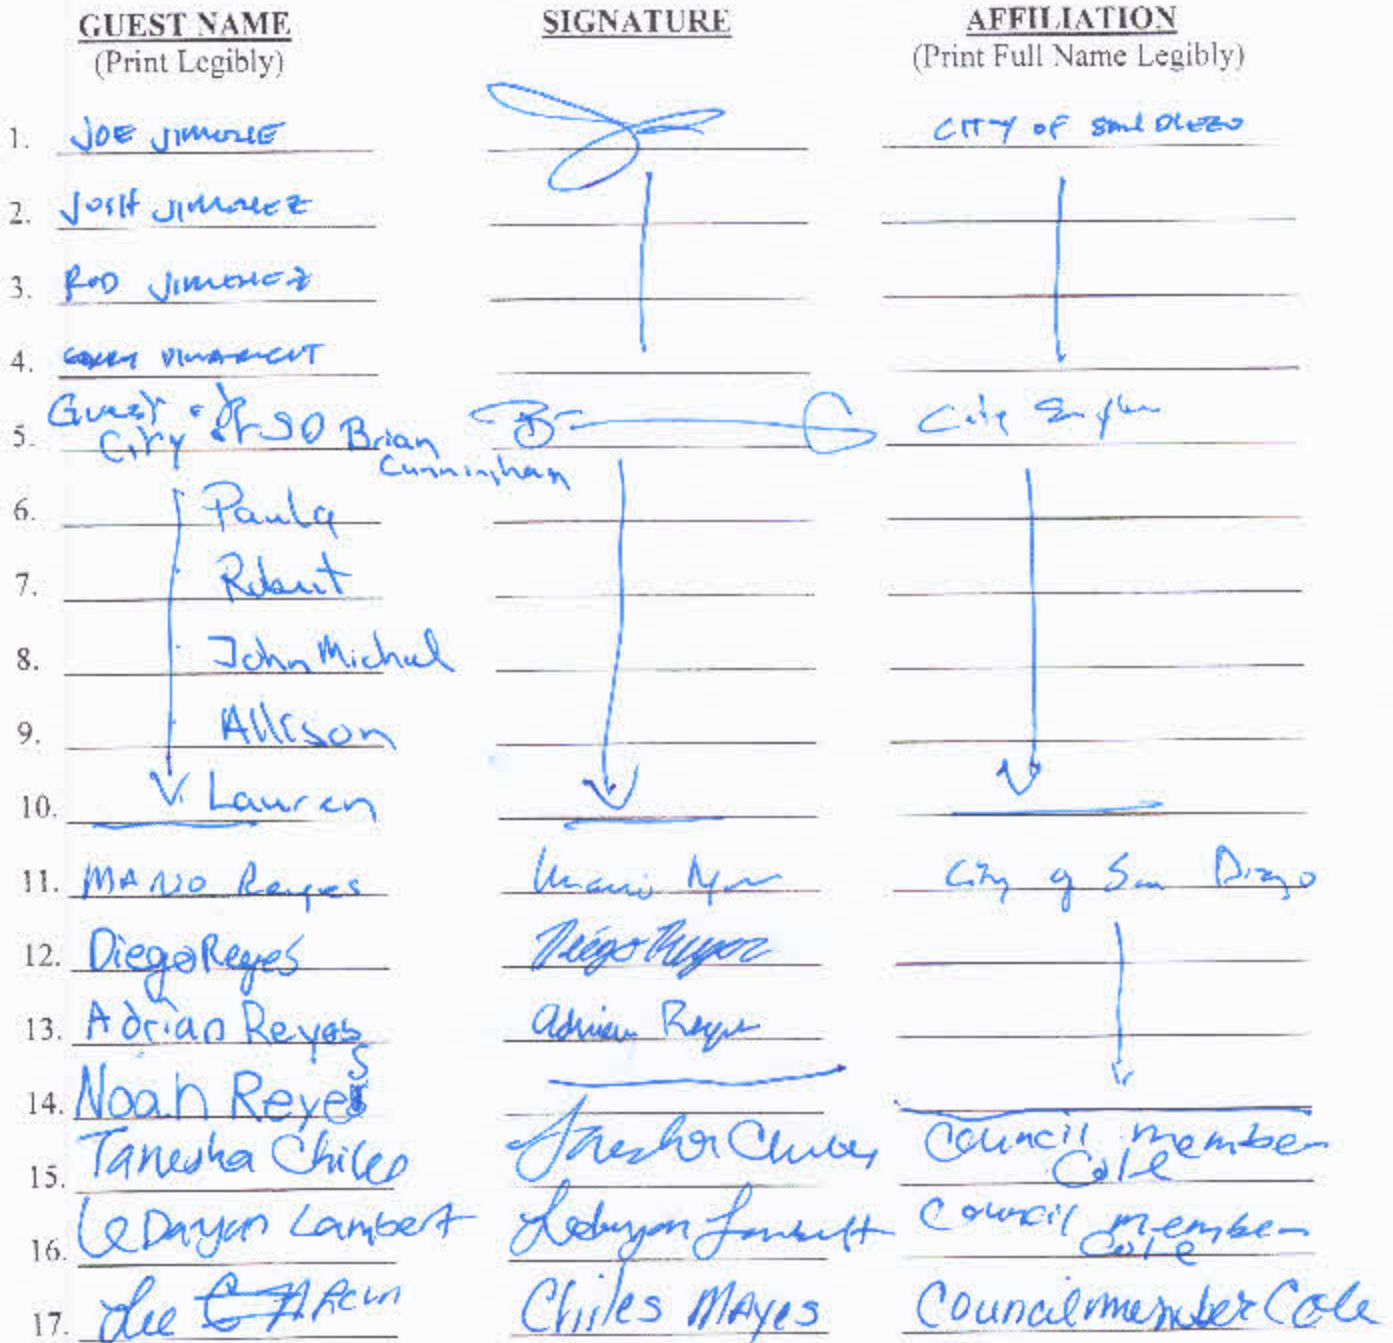 GUEST NAME SIGNATURE AFFILIATION
(Print Legibly) (Print Full Name Legibly)
1. JOE CITY OF SAN DIEGO
2. JOSH JIMENEZ
3. ROD JIMENEZ
4.
Guest of
5. City of SD Brian City
Cunningham
6. Paula
7. Robert
8. John Michael
9. Allison
10. Lauren
11. MARIO Reyes Mario City of San Diego
12. Diego Reyes Diego Reyes
13. Adrian Reyes Adrian Reyes
14. Noah Reyes
15. Tanesha Chiles Tanesha Chiles Council member
Cole
16. LeDaryon Lambert Ledaryon Lambert Council member
Cole
17. Lee Chiles MAyes Councilmember Cole